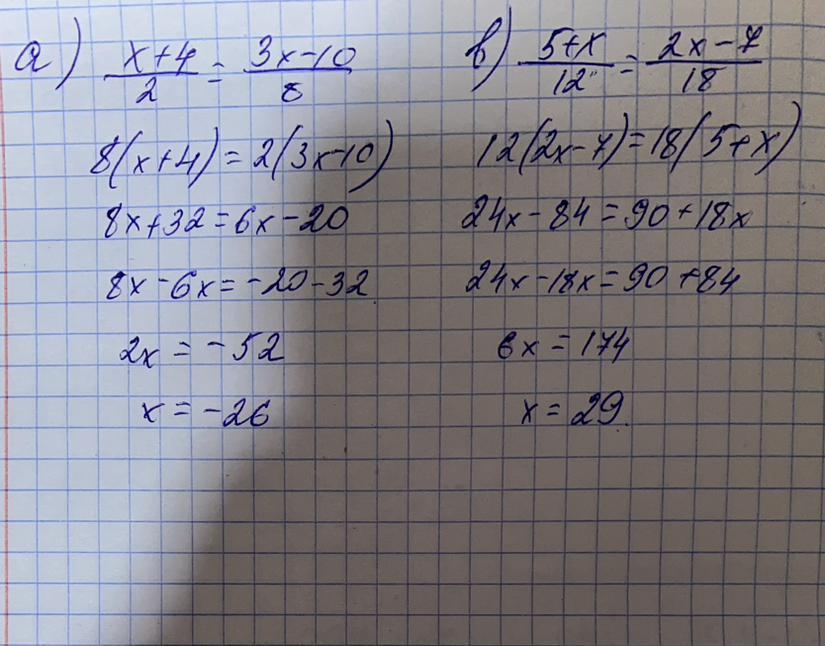 а) (x+4)/2 = (3x-10)/8
8(x+4)=2(3x-10)
8x+32=6x-20
8x-6x=-20-32
2x=-52
x=-26
в) (5+x)/12 = (2x-7)/18
12(2x-7)=18(5+x)
24x-84=90+18x
24x-18x=90+84
6x=174
x=29.